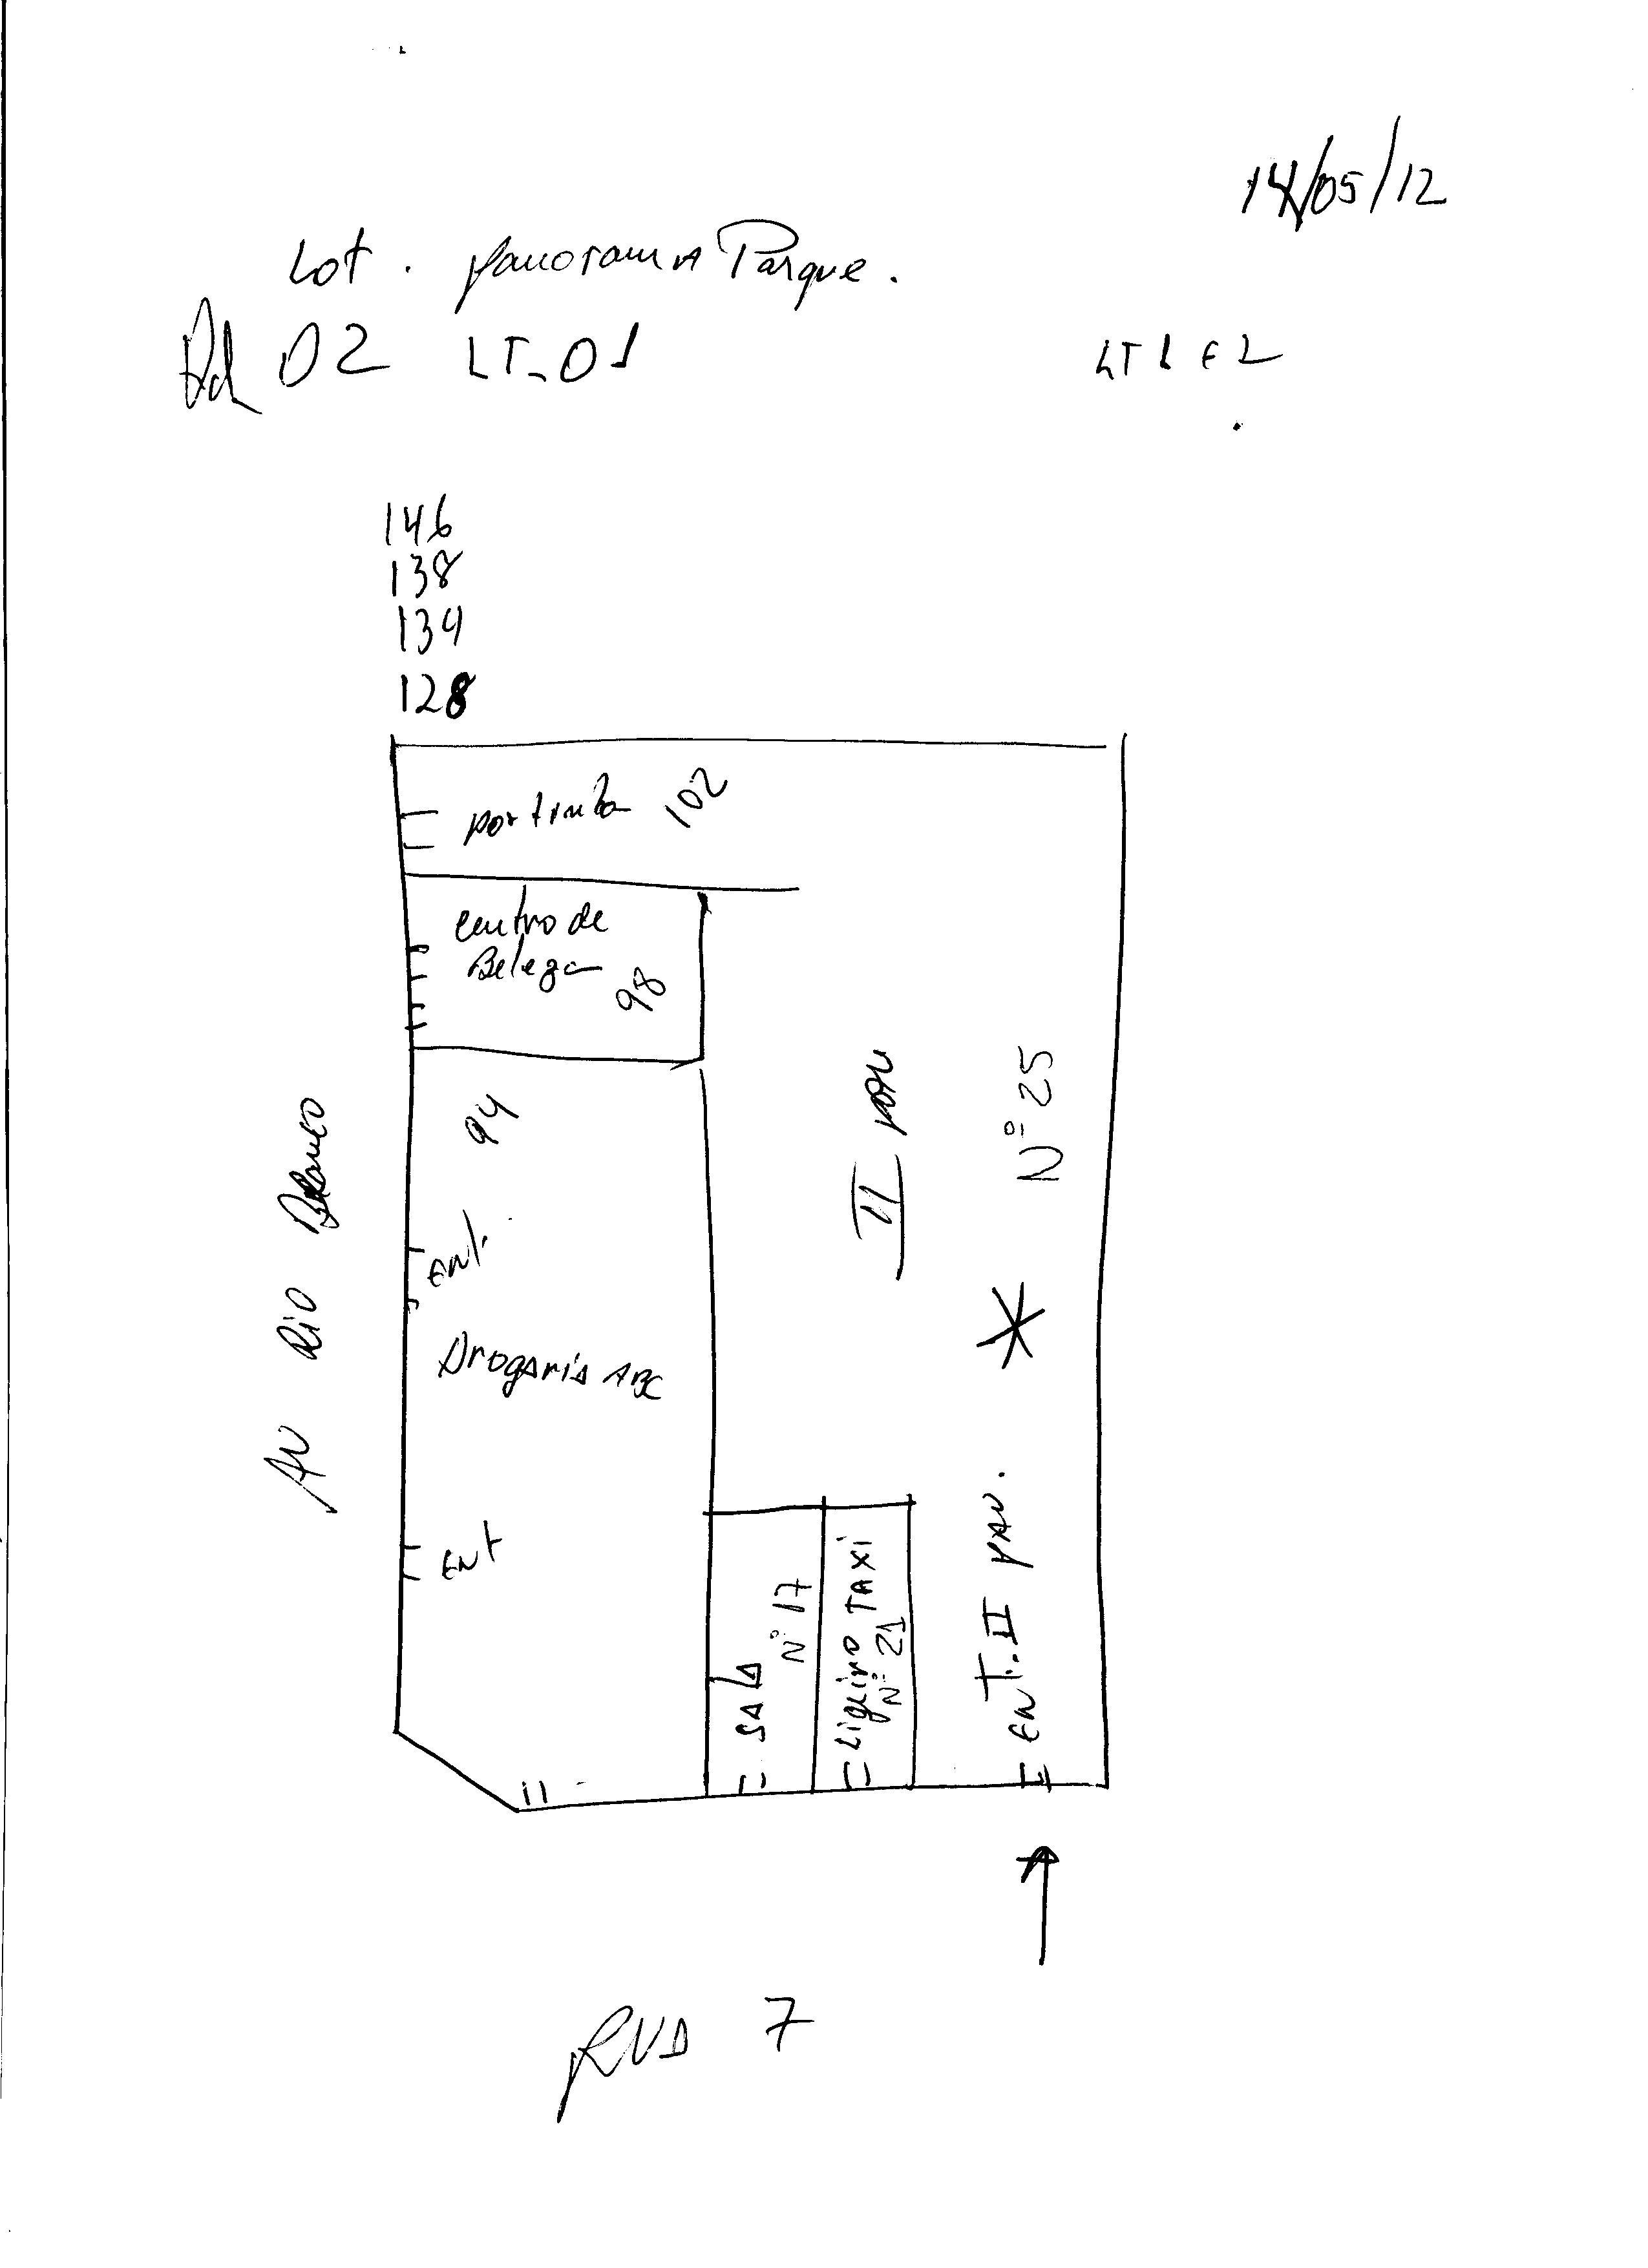 14/05/12
Lot. panorama Parque.
Qd 02 LT-01
LT 1 E 2
146
138
134
128
portinha 102
centro de
Beleza
98
94
Ent.
Drogaria ABC
Ent
AV Rio Branco
II pav
Nº 25
SALA
Nº 17
Ligeiro TAXI
Nº 21
ENT. II PAV.
RUA 7